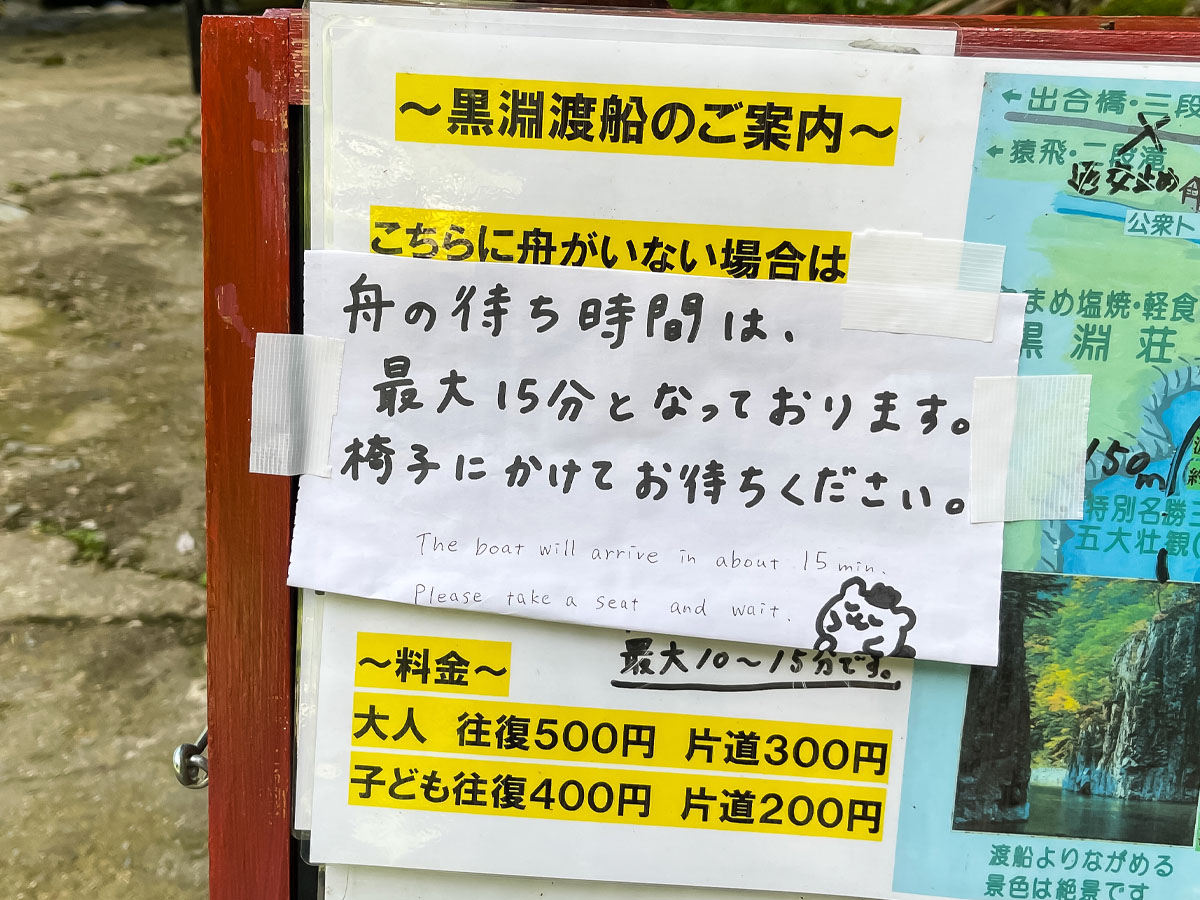 ～黒淵渡船のご案内～
こちらに舟がいない場合は
舟の待ち時間は、
最大15分となっております。
椅子にかけてお待ちください。
The boat will arrive in about 15 min.
Please take a seat and wait.
最大10～15分です。
～料金～
大人 往復500円 片道300円
子ども往復400円 片道200円
←出合橋・三段
←猿飛・二段滝
通交止め
公衆ト
まめ塩焼・軽食
黒淵荘
150m
特別名勝
五大壮観
渡船よりながめる
景色は絶景です